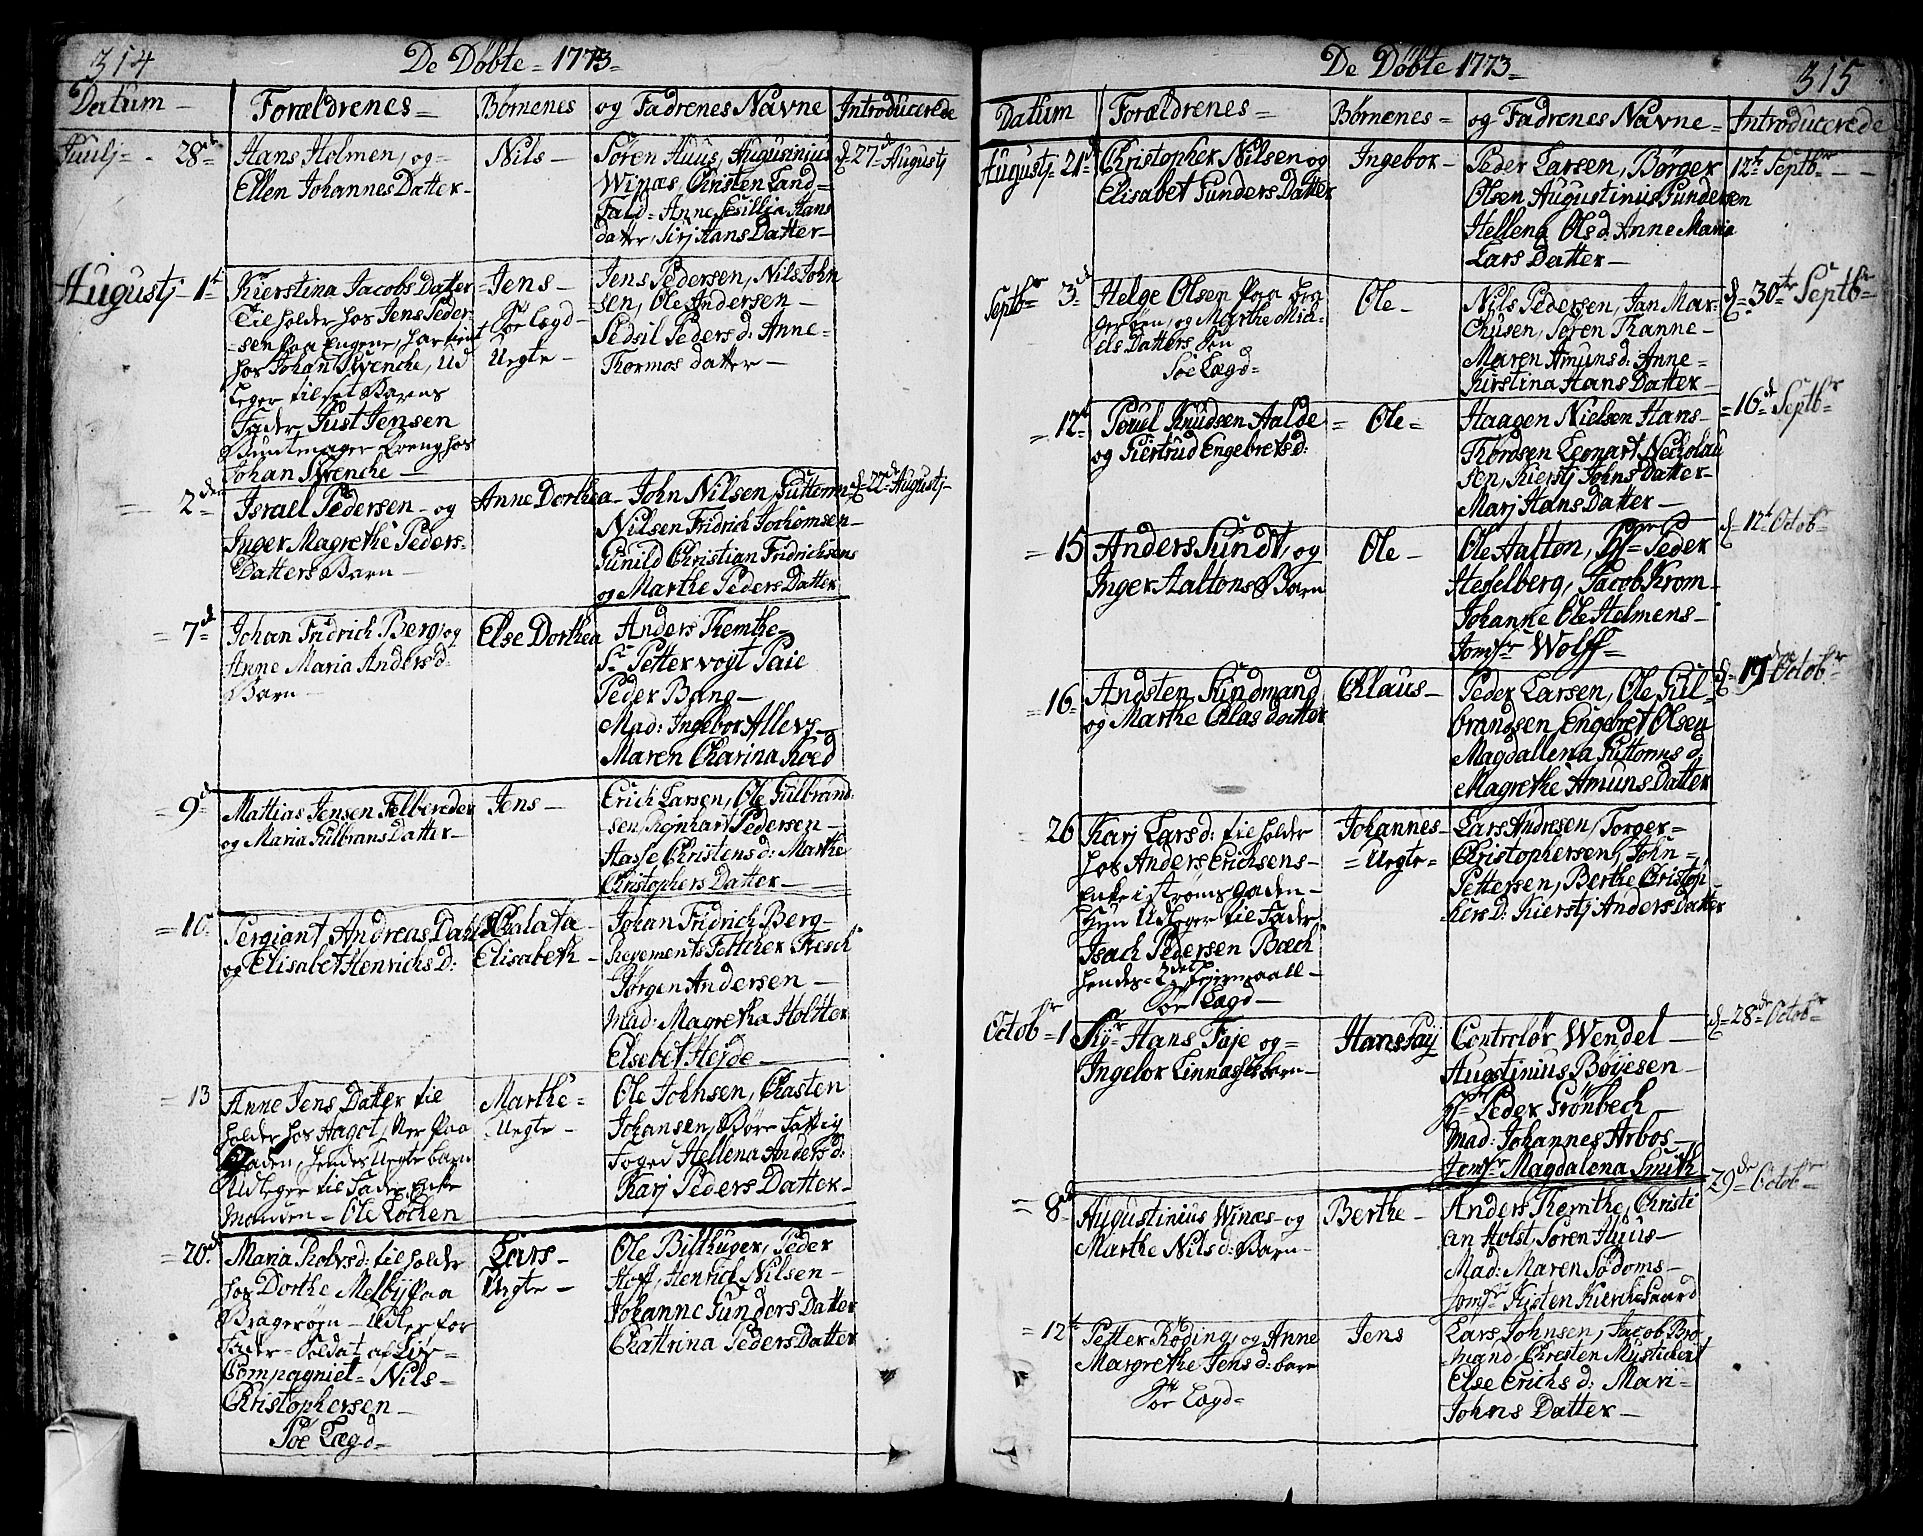 314
De Døbte - 1773 -
Datum -
Forældrenes =
Børnenes
og Fadrenes Navne
Introducerede
Juulj - 28de
Hans Holmen, og -
Ellen Johannes Datter -
Nils -
Søren Huus, Augusinius
Winæs, Christen Land =
Fald = Anne Sesillia Hans
datter, Sirj Hans Datter -
d. 27de Augustj
Augustj 1t
Kierstina Jacobs Datter
Til holder hos Jens Peder-
sen paa Engene, har tient
hos Johan Svenche, Ud
leger til sit Barns
Fader Just Jensen
Buntmager hos
Johan Svenche -
Jens -
Søe Lægd -
Uegte -
Jens Pedersen, Nils John
sen, Ole Andersen -
Sidsil Peders d: Anne =
Thormos datter -
2den
Israel Pedersen - og
Inger Magrethe Peders-
Datters Barn -
Anne Dorthea -
John Nilsen, Guttorm
Nilsen Fridrich Jochomsen -
Gunild Christian Fridrichsens
og Marthe Peders Datter
d. 22de Augustj -
= 7de
Johan Fridrich Berg, og
Anne Maria Anders d:
Barn -
Else Dorthea
Anders Themthe -
Sr Petter vogt Paie
Peder Bang -
Mad: Ingebor Allevs -
Maren Charina Koed
= 9de
Mattias Jensen Felbereder
og Maria Gulbrans Datter -
Jens -
Erich Larsen, Ole Gulbrand-
sen, Reinhart Pedersen -
Aasse Christens d: Marthe
Christophers Datter -
= 10.
Sergiant Andreas Dahl
og Elisabet Henrichs D:
Malata -
Elisabeth -
Johan Fridrich Berg -
Regements Feltcher Fresch
Jørgen Andersen -
Mad: Magretha Holtter
Elsebet Heyde -
= 13
Anne Jens Datter til
holder hos Aagot, Ner paa
Gaden, hendes Uegte barn
Udleger til Fader Enke
manden - Ole Lochen
Marthe =
Uegte -
Ole Johnsen, Chasten
Johansen, Børe Fattig
Foged Hellena Anders d:
Karj Peders Datter -
= 20de
Maria Rolvs d: til holder
hos Dorthe Melbÿ paa
Bragerøen - Udler for
Fader - Soldat af Liv =
Compagniet = Nils =
Christophersen -
Søe Lægd -
Lars -
Uegte -
Ole Bilthuger, Peder
Hoff, Henrich Nilsen -
Johanne Gunders Datter
Chattrina Peders Datter
315
De Døbte 1773 =
Datum
Forældrenes =
Børnenes =
og Fadrenes Navne =
Introducerede
Augustj = 21de
Christopher Nilsen og
Elisabet Gunders Datter
Ingebor -
Peder Larsen, Børger
Olsen Augustinius Gundersen
Hellena Ols d: Anne Maria
Lars Datter -
12te Septbr - -
Septbr 3de
Helge Olsen paa Bra
gerøen, og Marthe Mich-
els Datters Søn
Søe Lægd =
Ole -
Nils Pedersen, Jan Mar-
chusen, Søren Thanne -
Maren Amunds d: Anne =
Kirstina Hans Datter -
d = 30te Septbr
= 12te
Poul Knudsen Aalde
og Giertrud Engebrets d:
= Ole =
Haagen Nielsen Hans -
Thordsen Leonart Neckolau
sen, Kierstj Johns Datter -
Marj Hans Datter -
= 16de Septbr
= 15
Anders Sundt, og
Inger Aaltons Barn
Ole -
Ole Aalton, Hr Peder
Heselberg, Jacob Krom -
Johanne Ole Helmens -
Jomfr Wolff =
d 12te Octobr
= 16 -
Andsten Sundmand
og Marthe Clas datter
Claus -
Peder Larsen, Ole Gul-
brandsen, Engebret Olsen
Magdallena Guttorms d:
Magrethe Amuns Datter
d = 19de Octobr
26
Karj Lars d: til holder
hos Anders Erichsens -
Enke i Strøms Gaden -
Hun Udleger til Fader
Isach Pedersen Bæch
hendes = 2det Leiermaall -
Søe Lægd -
Johannes -
= Uegte =
Lars Andresen, Torger =
Christophersen, John =
Pettersen, Berthe Christop-
hers D: Kierstj Anders Datter
Octobr = 1
Hans Faje og =
Ingebor Barn -
Hans Faÿ
Controlør Wendel -
Augstinius Bøÿesen -
Hr Peder Grönbech
Mad: Johannes Arbos -
Jomfr Magdalena Smith
d = 28de Octobr
= 8de
Augustinius Winæs - og
Marthe Nils d: Barn -
Berthe -
Anders Themthe, Christi
an Holst, Søren Huus -
Mad: Maren Sodoms -
Jomfr Kisten Kierchegaard
29de Octobr
= 12te
Petter Røding, og Anne
Margrethe Jens d: barn
Søe Lægd =
Jens
Lars Johnsen, Jacob Bro
mand, Chresten
Else Erichs d: Mari -
Johns Datter -